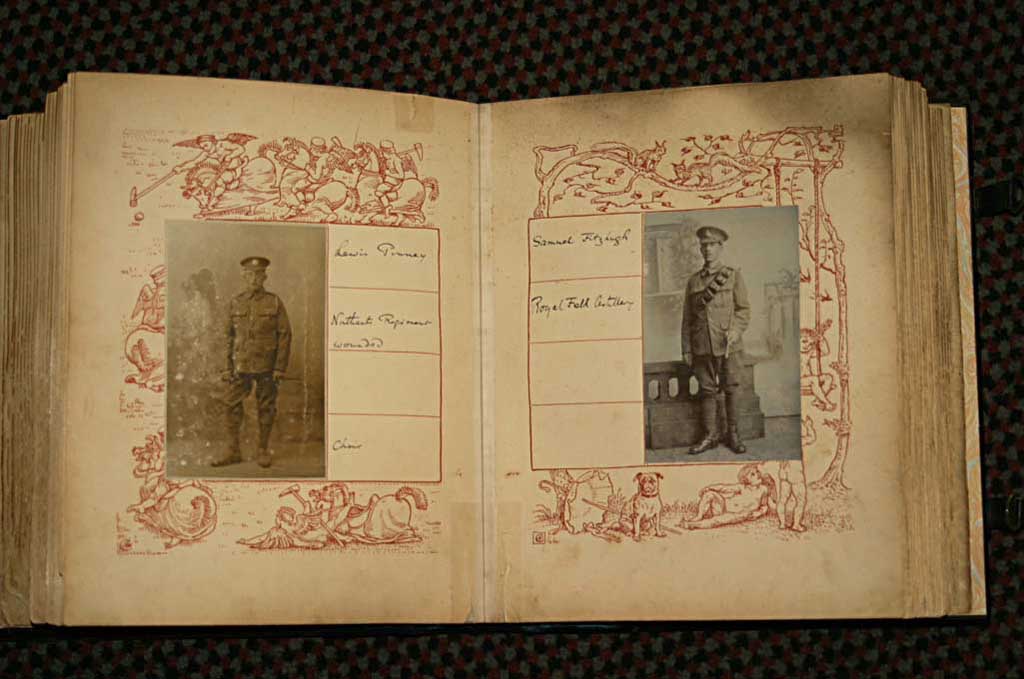 Lewis Pinney
Northants Regiment
wounded
Choir
Samuel Fitzhugh
Royal Field Artillery